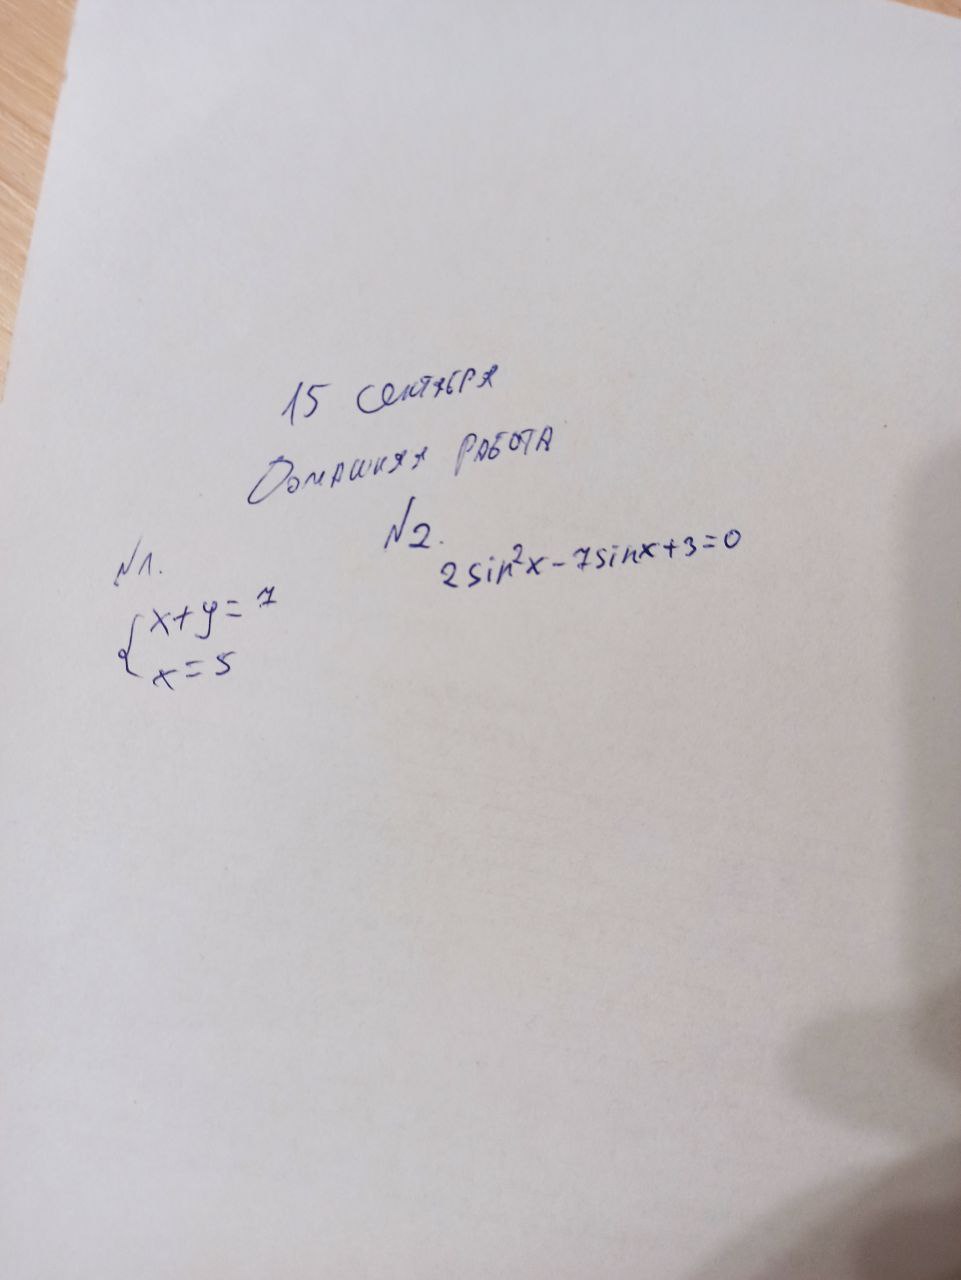 15 сентября
Домашняя работа
N1.
x+y=7
x=5
N2.
2sin²x-7sinx+3=0